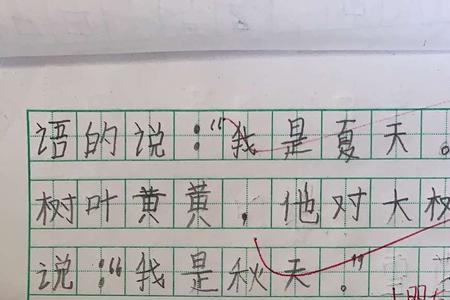 语的说：“我是夏天。
树叶黄黄，他对大树
说：“我是秋天。”